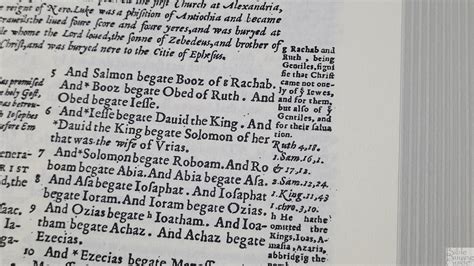 the first Church at Alexandria,
reigne of Nero. Luke was a phisition of Antiochia and became
liued foure score and foure yeres, and was buryed at
whome the Lord loued, the sonne of Zebedeus, and brother of
Christ, and was buryed nere to the Citie of Ephesus.
5 And Salmon begate Booz of g Rachab.
And* Booz begate Obed of Ruth. And
Obed begate Iesse.
6 And*Iesse begate Dauid the King. And
*Dauid the King begate Solomon of her
that was the wife of Vrias.
7 And*Solomon begate Roboam. And Ro
boam begate Abia. And Abia begate Asa
8 And Asa begate Iosaphat. And Iosaphat
begate Ioram. And Ioram begate Ozias.
9 And Ozias begate h Ioatham. And Ioatham
begate Achaz. And Achaz begate
Ezecias.
10 And *Ezecias begate Manasses
g Rachab and
Ruth, being
Gentiles, signifie
that Christ
came not onely
of y Iewes,
and for them,
but also of
Gentiles, and
for their saluation.
Ruth 4,18.
1.Sam.16,1.
& 17,12.
2.Sam.12,24
1.King.11,43
1.chro.3,10.
h He hathe
omitted thre
Kings, Ioas, A-
masia, Azaris,
abbridging the
was promised
holy Gost.
was betrou-
Iosephes
fore Em
genera-
RIST
led,the
Isaac.